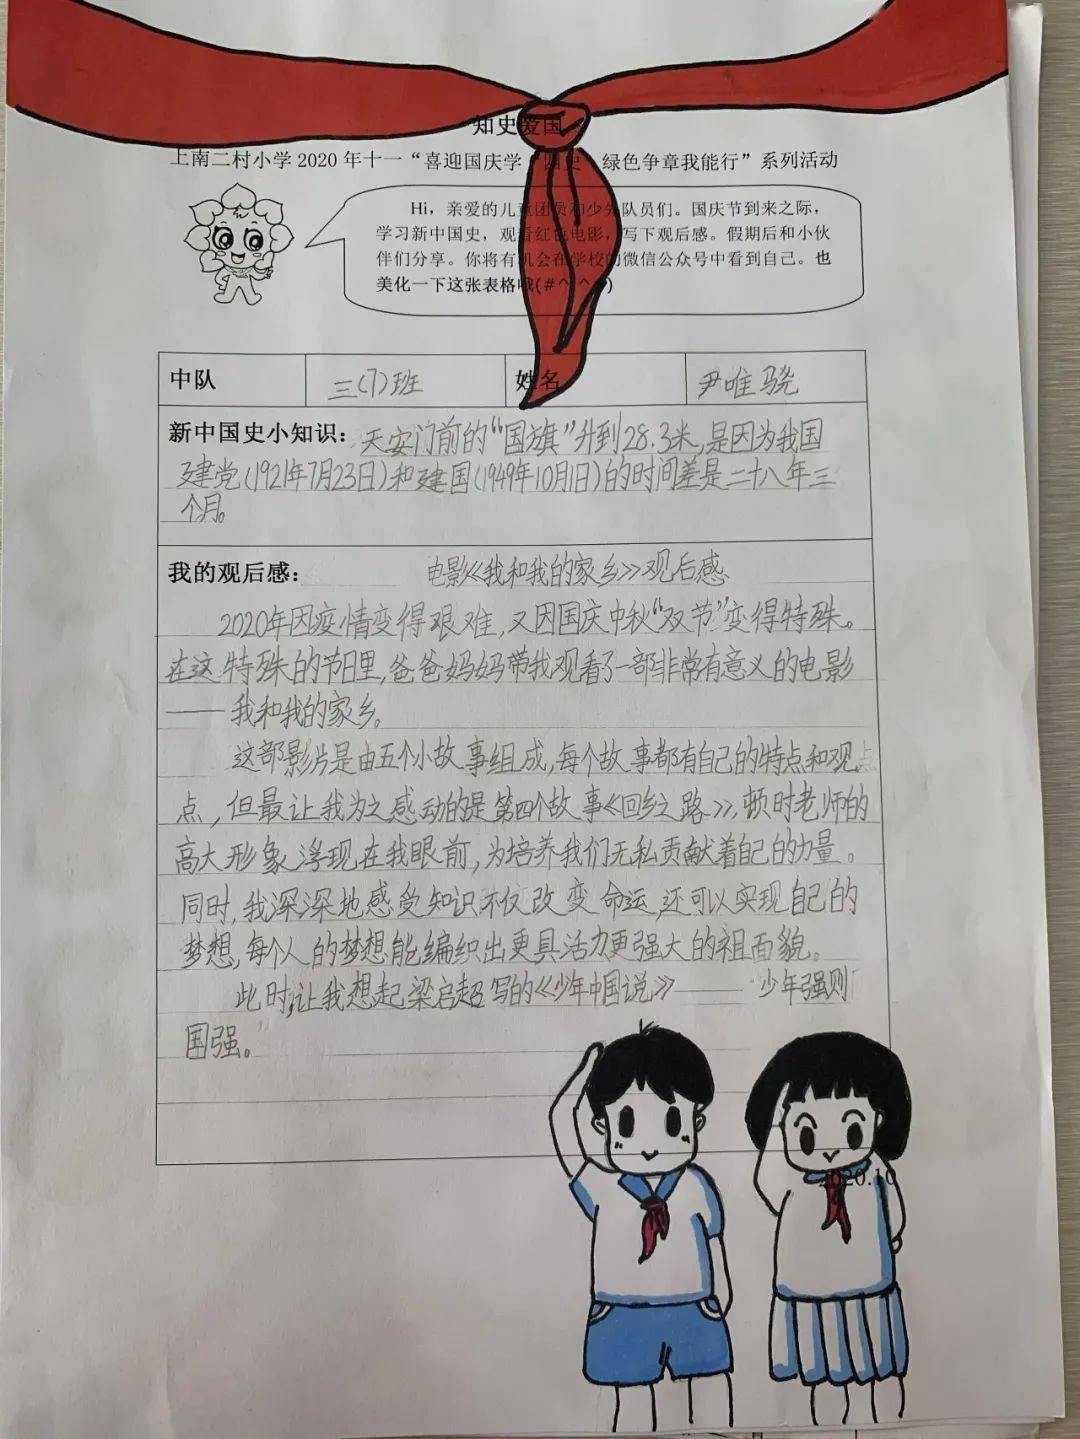 知史爱国
上南二村小学2020年十一“喜迎国庆学“四史”绿色争章我能行”系列活动
Hi，亲爱的儿童团员和少先队员们。国庆节到来之际，
学习新中国史，观看红色电影，写下观后感。假期后和小伙
伴们分享。你将有机会在学校的微信公众号中看到自己。也
美化一下这张表格哦(#^.^#)
中队 三(7)班 姓名 尹唯骁
新中国史小知识：天安门前的“国旗”升到28.3米,是因为我国
建党(1921年7月23日)和建国(1949年10月1日)的时间差是二十八年三
个月。
我的观后感： 电影《我和我的家乡》观后感
2020年因疫情变得艰难,又因国庆中秋“双节”变得特殊。
在这特殊的节日里,爸爸妈妈带我观看了一部非常有意义的电影
——我和我的家乡。
这部影片是由五个小故事组成,每个故事都有自己的特点和观点
点，但最让我为之感动的是第四个故事《回乡之路》,顿时老师的
高大形象浮现在我眼前,为培养我们无私贡献着自己的力量。
同时,我深深地感受知识不仅改变命运,还可以实现自己的
梦想,每个人的梦想能编织出更具活力更强大的祖面貌。
此时,让我想起梁启超写的《少年中国说》——“少年强则
国强。”
2020.10